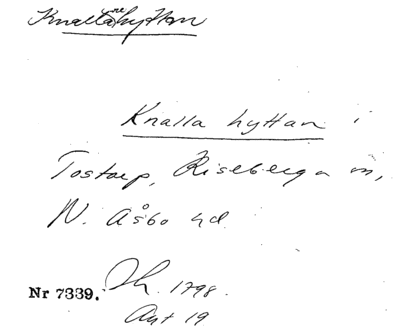 Knallarehyttan
Knalla hyttan i
Tostarp, Riseberga sn,
N. Åsbo hd
Nr 7339. Th. 1798.
Ant 19